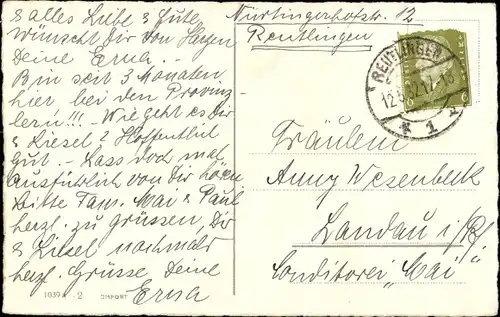 & alles Liebe & Gute
wünscht Dir von Herzen
Deine Erna. –
Bin seit 3 Monaten
hier bei den Provinz-
lern!!! – Wie geht es Dir
& Liesel? Hoffentlich
gut. – Lass doch mal
Ausführlich von Dir hören
Bitte Fam. Mai & Paul
herzl. zu grüssen, Dir
& Liesel nochmals
herzl. Grüsse, Deine
Erna
1039 2 IMPORT
Nürtingerhofstr. 12
Reutlingen
REUTLINGEN
12. 32.17-18
* 1 *
6 6
Fräulein
Anny Wesenbeck
Landau i/
Conditorei „Mai"